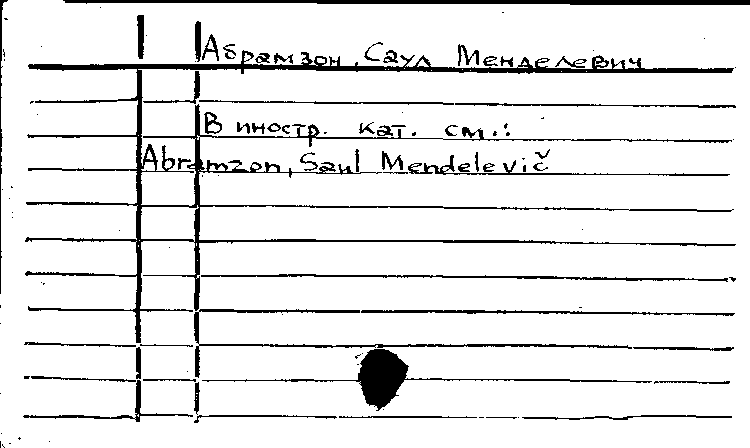 Абрамзон, Саул Менделевич
В иностр. кат. см.:
Abramzon, Saul Mendelevič